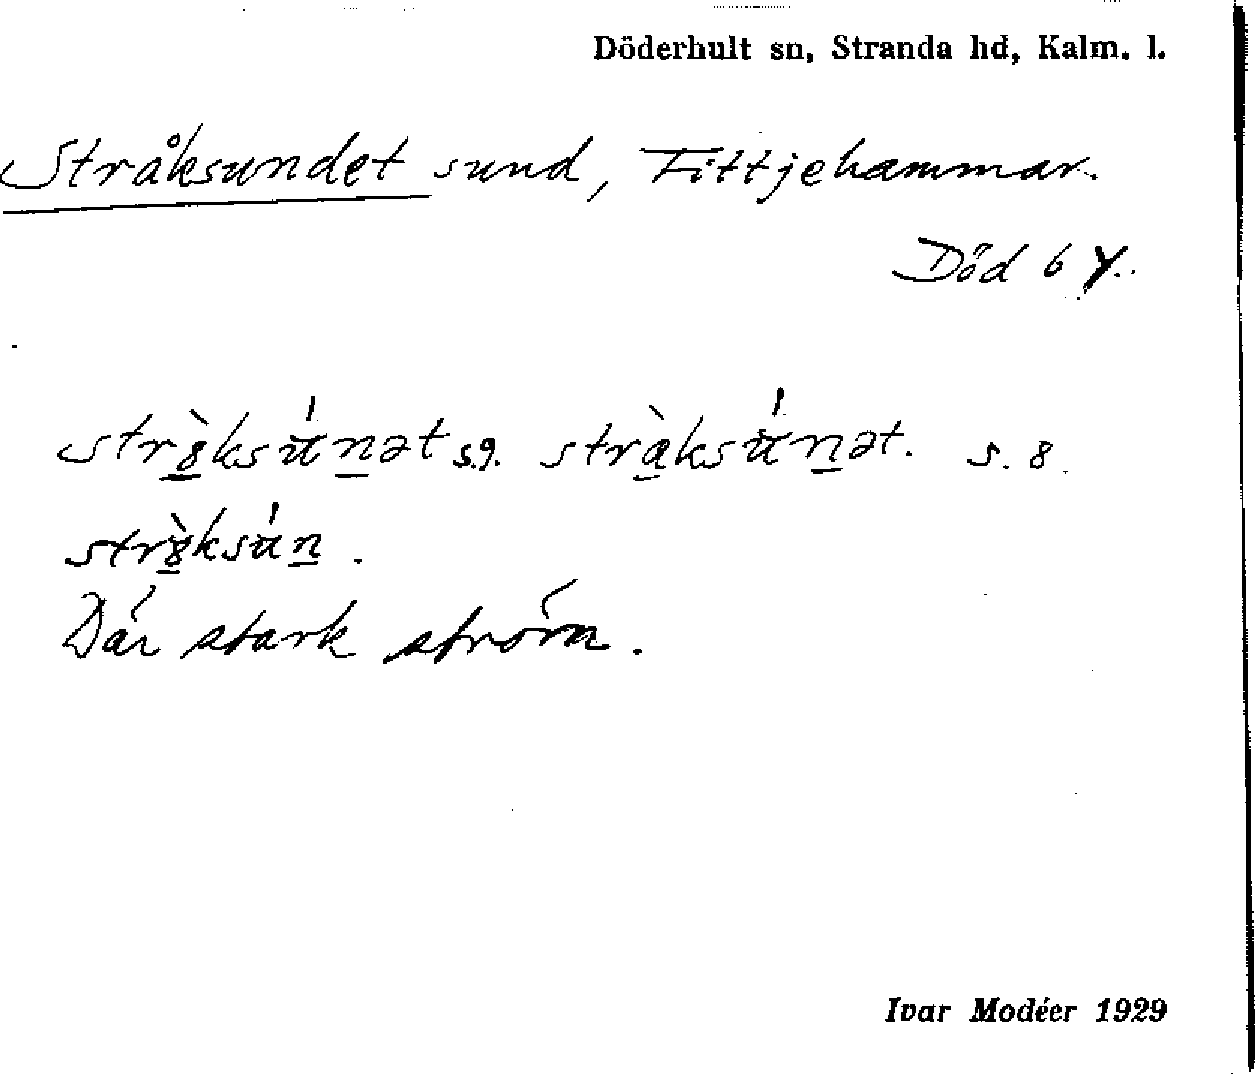 Döderhult sn, Stranda hd, Kalm. l.
Stråksundet sund, Fittjehammar.
Död 6 Y.
s.9. s. 8
Där stark ström.
Ivar Modéer 1929